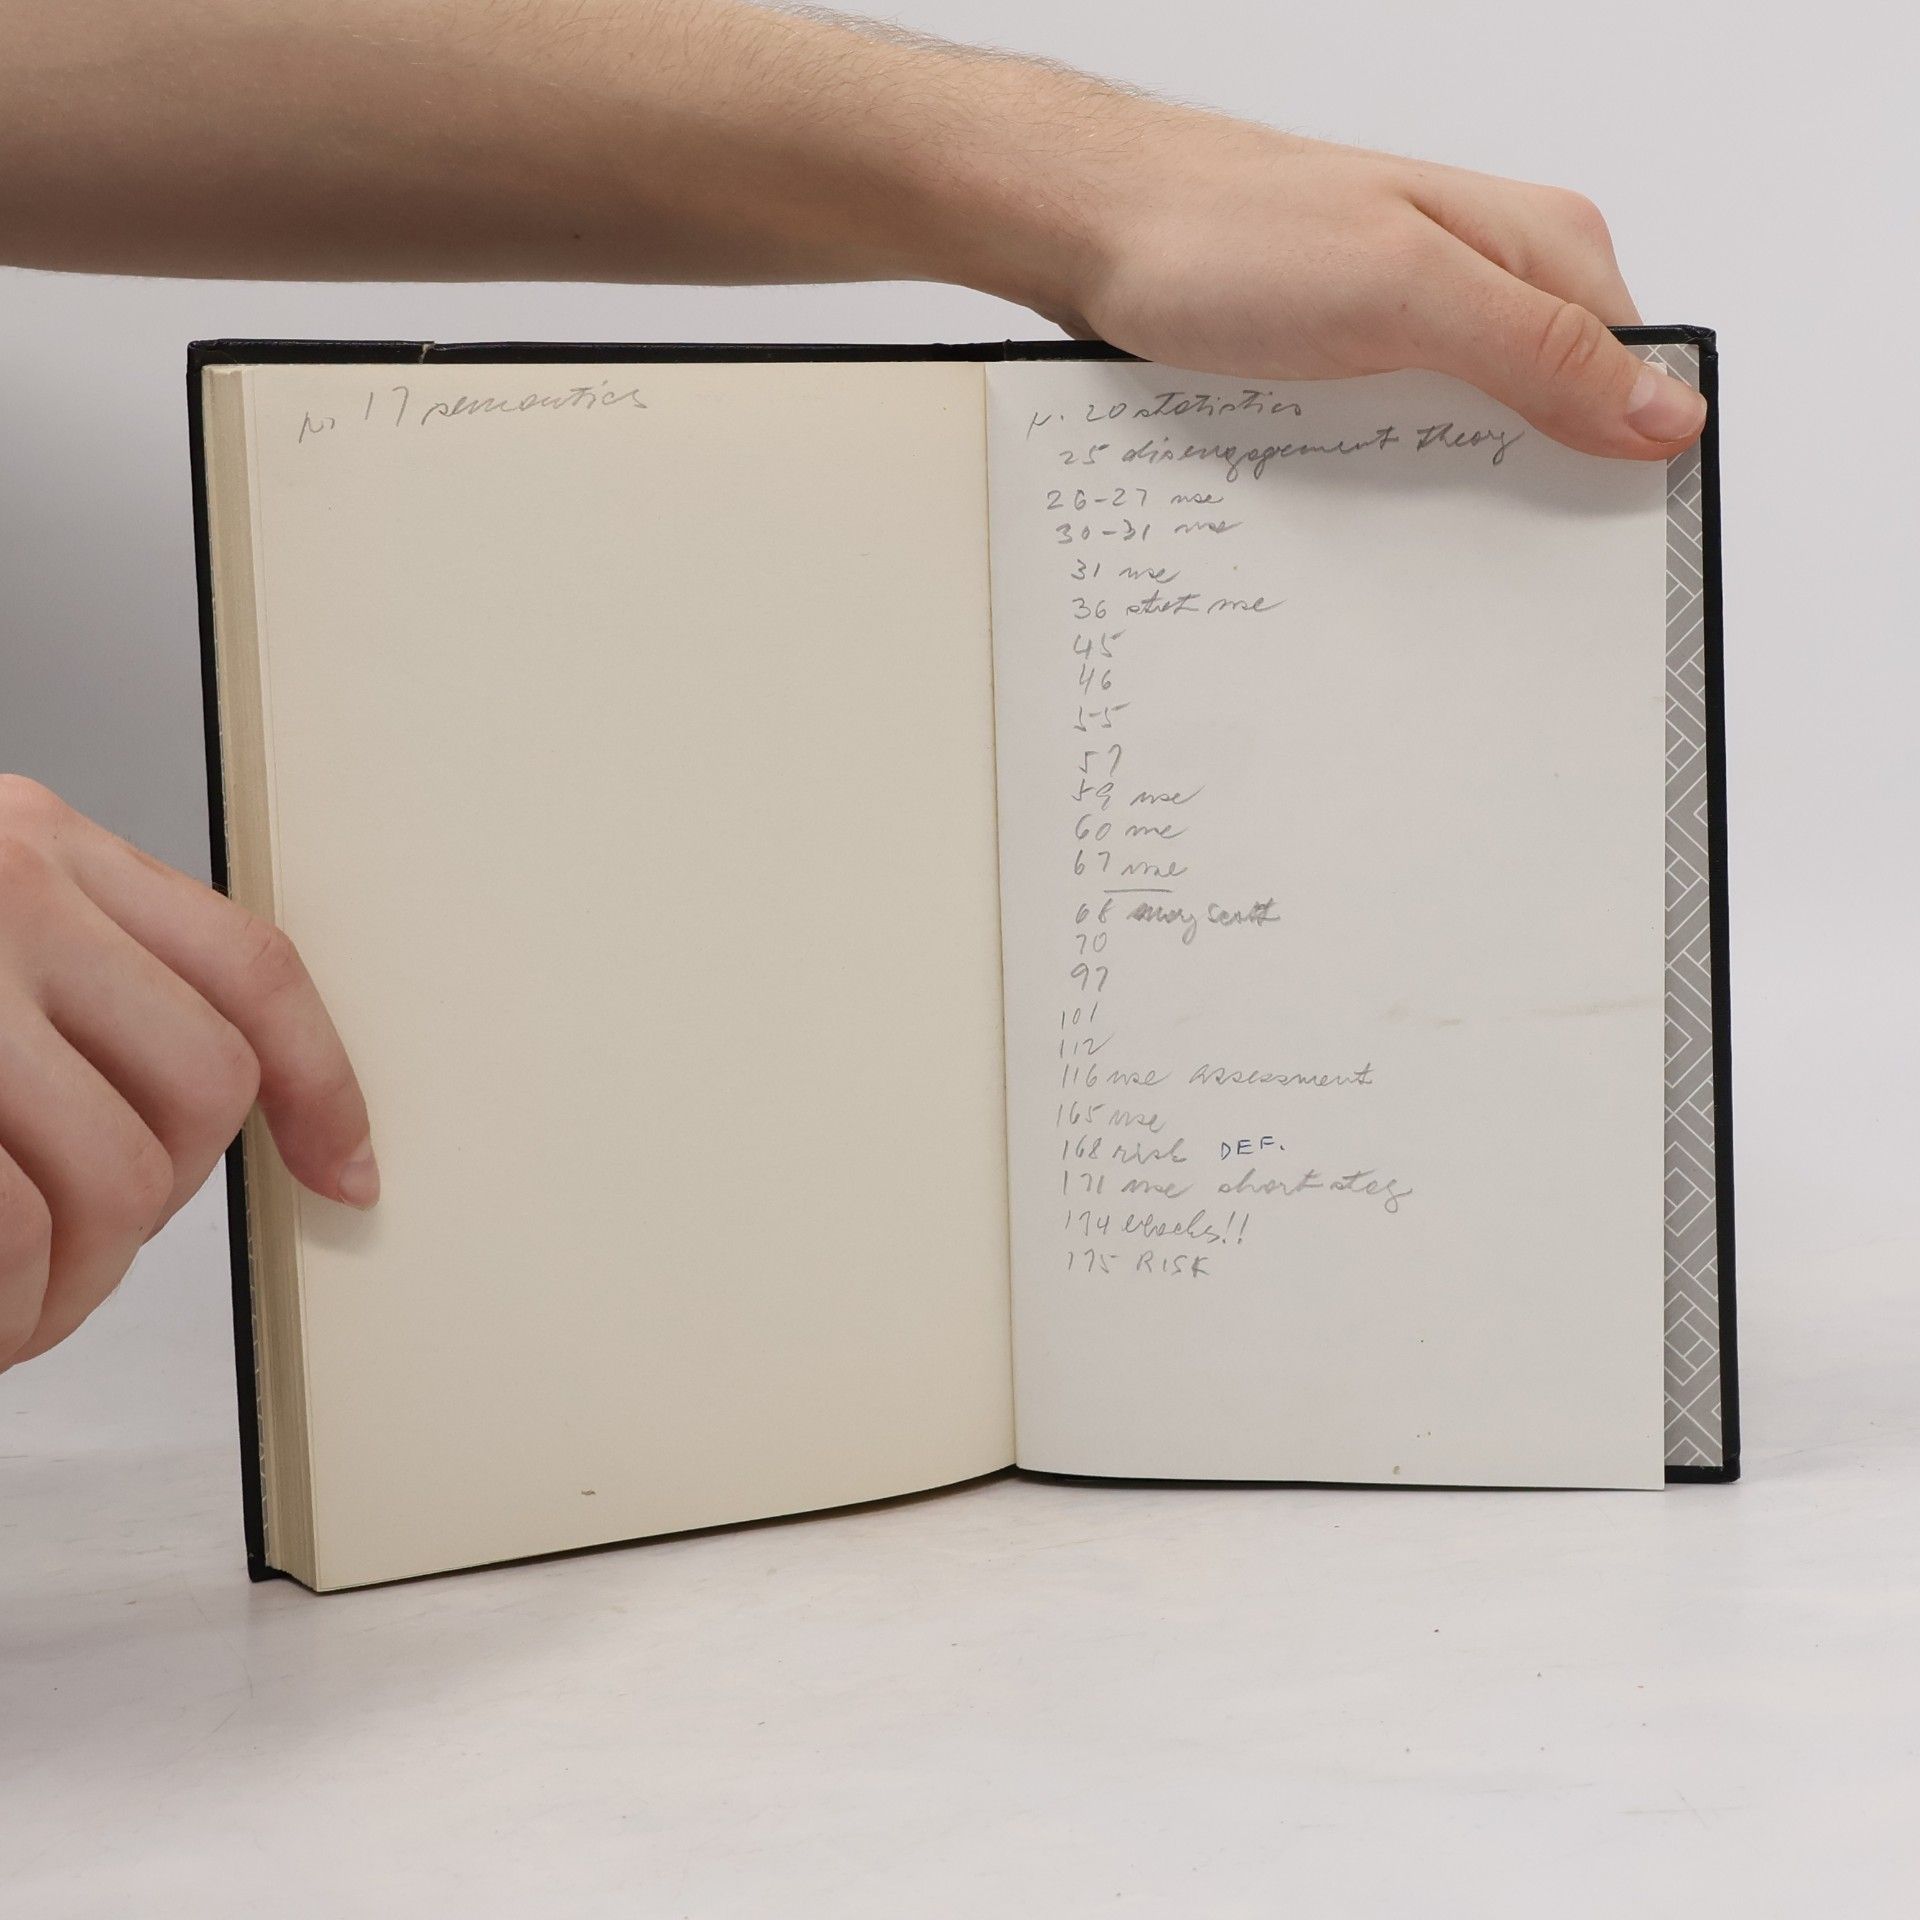 N. 17 semantics
N. 20 statistics
25 disengagement theory
26-27 use
30-31 use
31 use
36 stat use
45
46
55
57
59 use
60 use
67 use
68 Mary Scott
70
97
101
112
116 use assessment
165 use
168 risk DEF.
171 use short stay
174 blacks!!
175 RISK